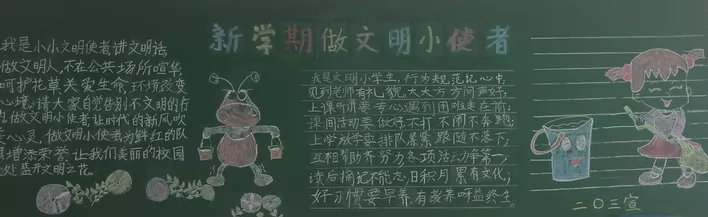 新学期做文明小使者
我是小小文明使者讲文明话
做文明人,不在公共场所喧华
呵护花草关爱生命,环境改变
心境.请大家自觉告别不文明的行
做文明小使者让时代的新风吹
心灵,做文明小使者为鲜红的队
增添荣誉让我们美丽的校园
处盛开文明之花.
我是文明小学生,行为规范记心中,
见到老师有礼貌,大大方方问声好;
上课听讲要专心遇到困难走在前;
课间活动要做好,不打不闹不奔跑;
上学放学要排队紧紧跟随不落下;
互相帮助齐努力各项活动争第一,
读后摘记不能忘,日积月累有文化;
好习惯要早养,有教养呀益终生
二〇三宣